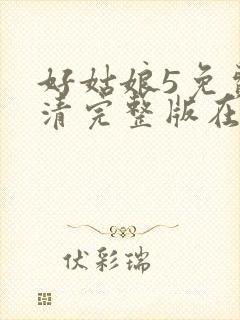 好姑娘5免费
清完整版在
伏彩瑞